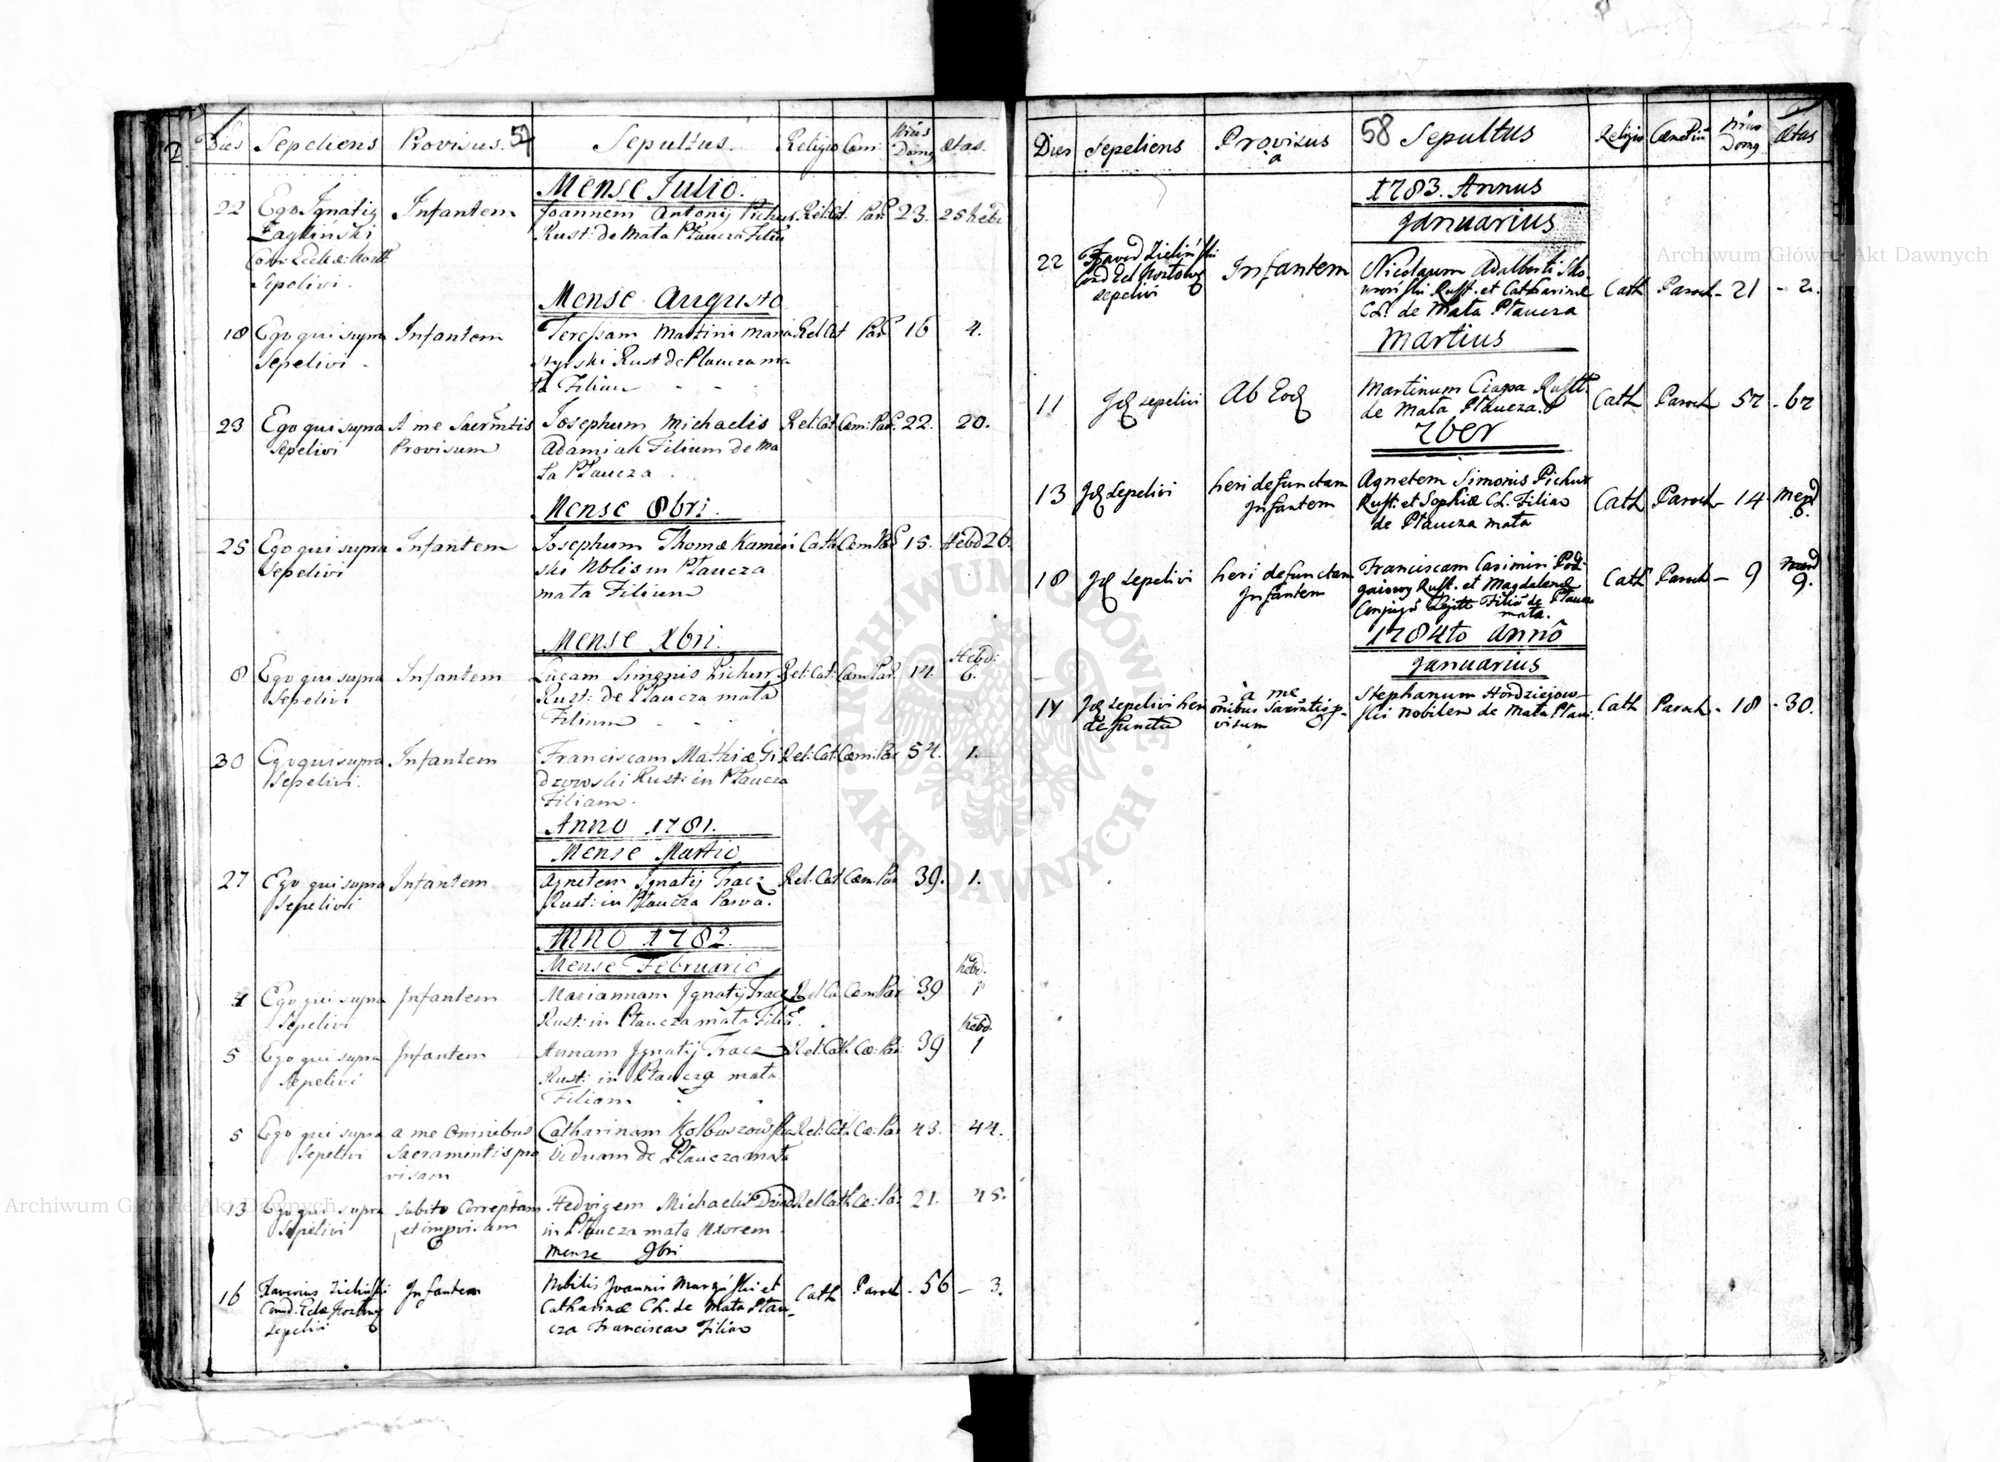 Dies Sepeliens Provisus. 57 Sepultus. Religio Cæm: Nrus Domq ætas.
Mense Julio.
22 Ego Ignatij Infantem Joannem Antonij Pichur Rel:Cat. Par 23. 25 hebd
Zagliński Rust: de Mała Płaucza Filiũ
Sepelivi.
Mense Augusto
18 Ego qui supra Infantem Teressam Martini mana Rel:Cat Par 16 4.
Sepelivi styrski Rust de Płaucza ma
ła Filiam
23 Ego qui supra A me Sacrmtis Josephum Michaelis Rel:Cat. Cœm: Par. 22. 20.
Sepelivi Provisum Adamiak Filium de Ma
ła Płaucza
Mense 8bri.
25 Ego qui supra Infantem Josephum Thomæ Kamień Cath Cœm Par 15. Hebd 26.
Sepelivi ski Nblis in Płaucza
mała Filium
Mense Xbri.
8 Ego qui supra Infantem Lucam Simonis Pichur Rel:Cat: Cœm Par. 14. Hebd: 6.
Sepelivi Rust: de Płaucza mała
Filium
30 Ego qui supra Infantem Franciscam Mathiæ Gi Rel:Cat: Cœm: Par 54. 1.
Sepelivi. dzowski Rust: in Płaucza
Filiam.
Anno 1781.
Mense Martio
27 Ego qui supra Infantem Agnetem Ignatij Tracz Rel:Cat Cœm:Par 39. 1.
Sepelivi Rust: in Płaucza Parva.
Anno 1782.
Mense Februario
4 Ego qui supra Infantem Mariannam Ignatij Tracz Rel Ca Cœm Par 39 hebd. 1
Sepelivi Rust: in Płaucza mała Filiã.
5 Ego qui supra Infantem Annam Ignatij Tracz Rel:Cath Cœ:Par 39 hebd. 1
Sepelivi Rust: in Płaucza mała
Filiam
5 Ego qui supra a me Omnibus Catharinam Kolbuszowska Rel:Cat. Cœ:Par 43. 44.
Sepelivi Sacramentis pro Viduam de Płaucza mała
visam
13 Ego qui supra Subito Correptam Hedvigem Michaelis Rel Cath Cœ:Par 21. 45.
Sepelivi et improvisam in Płaucza mała Uxorem
Mense 9bri
16 Xaverius Zieliński Infantem Nobilis Joannis et Cath Paroch - 56 - 3.
Cond. Eclæ Catharinæ CL. de Mała Płau-
sepelivi cza Franciscam Filiam
Dies Sepeliens Provisus a 58 Sepultus Religio Cæmtriũ Nrus Domq Ætas
1783. Annus
Januarius
22 Zieliński Infantem Nicolaum Adalberti Sko Cath Paroch - 21 - 2.
Cond Ecl Rust. et Catharinæ
sepelivi CL. de Mała Płaucza
Martius
11 Jd sepelivi Ab Eod Martinum Ciapa Rust. Cath Paroch 57 - 67
de Mała Płaucza.
7ber
13 Jd Sepelivi heri defunctam Agnetem Simonis Pichur Cath Paroch - 14. mens 6.
Infantem Rust. et Sophiæ CL. Filiam
de Płaucza mała
18 Jd sepelivi heri defunctam Franciscam Casimiri Pod- Cath Paroch - 9 mens 9.
Infantem gaiowy Rust. et Magdalenæ
Conjugũ Legitt Filiã de Płaucza
mała.
1784to Annô
Januarius
14 Jd sepelivi heri a me Stephanum Hordziejow- Cath Paroch - 18 - 30.
defunctũ omibus Sacrmtis p- ski Nobilem de Mała Płau.
visum
Archiwum Główne Akt Dawnych
Archiwum Główne Akt Dawnych
ARCHIWUM GŁÓWNE
AKT DAWNYCH